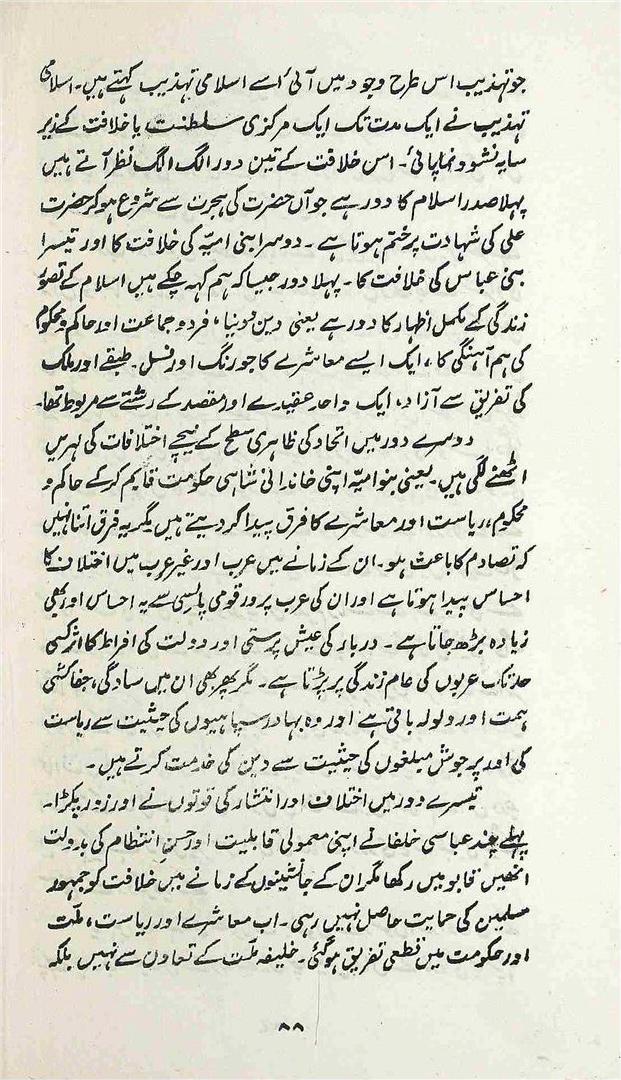 جو تہذیب اس طرح وجود میں آئی اسے اسلامی تہذیب کہتے ہیں۔ اسلامی
تہذیب نے ایک مدت تک ایک مرکزی سلطنت یا خلافت کے زیر
سایہ نشو و نما پائی۔ اس خلافت کے تین دور الگ الگ نظر آتے ہیں
پہلا صدر اسلام کا دور ہے جو آں حضرت کی ہجرت سے شروع ہو کر حضرت
علی کی شہادت پر ختم ہوتا ہے۔ دوسرا بنی امیّہ کی خلافت کا اور تیسرا
بنی عباس کی خلافت کا۔ پہلا دور جیسا کہ ہم کہہ چکے ہیں اسلام کے تصوّر
زندگی کے مکمل اظہار کا دور ہے یعنی دین و دنیا، فرد و جماعت اور حاکم و محکوم
کی ہم آہنگی کا، ایک ایسے معاشرے کا جو رنگ اور نسل۔ طبقے اور ملک
کی تفریق سے آزاد، ایک واحد عقیدے اور مقصد کے رشتے سے مربوط تھا۔
دوسرے دور میں اتحاد کی ظاہری سطح کے نیچے اختلافات کی لہریں
اٹھنے لگی ہیں۔ یعنی بنو امیّہ اپنی خاندانی شاہی حکومت قایم کر کے حاکم و
محکوم، ریاست اور معاشرے کا فرق پیدا کر دیتے ہیں مگر یہ فرق اتنا نہیں
کہ تصادم کا باعث ہو۔ ان کے زمانے میں عرب اور غیر عرب میں اختلاف کا
احساس پیدا ہوتا ہے اور ان کی عرب پرور قومی پالیسی سے یہ احساس اور بھی
زیادہ بڑھ جاتا ہے۔ دربار کی عیش پرستی اور دولت کی افراط کا اثر کسی
حد تک عربوں کی عام زندگی پر پڑتا ہے۔ مگر پھر بھی ان میں سادگی، جفاکشی
ہمت اور ولولہ باقی ہے اور وہ بہادر سپاہیوں کی حیثیت سے ریاست
کی اور پر جوش مبلغوں کی حیثیت سے دین کی خدمت کرتے ہیں۔
تیسرے دور میں اختلاف اور انتشار کی قوتوں نے اور زور پکڑا۔
پہلے چند عباسی خلفا نے اپنی معمولی قابلیت اور حسنِ انتظام کی بدولت
انھیں قابو میں رکھا مگر ان کے جانشینوں کے زمانے میں خلافت کو جمہور
مسلمین کی حمایت حاصل نہیں رہی۔ اب معاشرے اور ریاست، ملّت
اور حکومت میں قطعی تفریق ہو گئی۔ خلیفہ ملّت کے تعاون سے نہیں بلکہ
۸۸